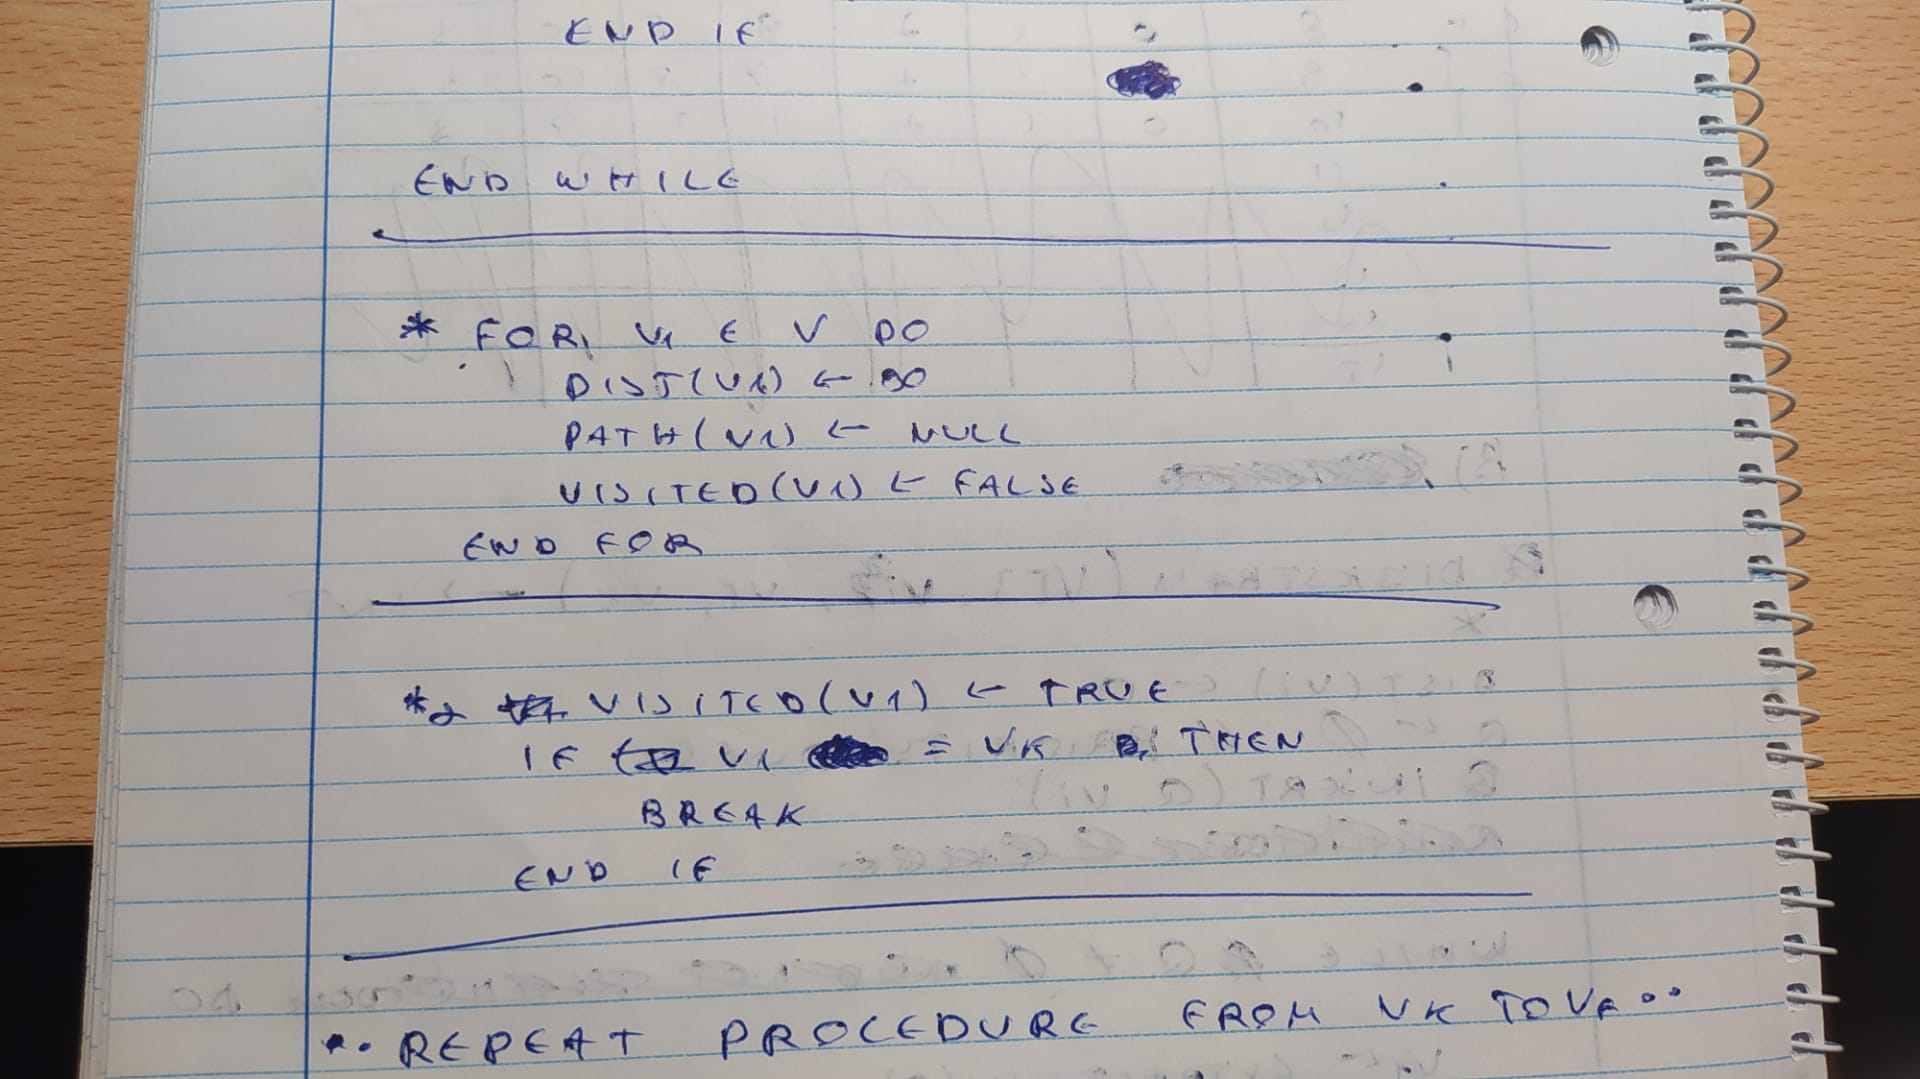 END IF
END WHILE
* FOR V1 ∈ V DO
DIST(V1) ← ∞
PATH(V1) ← NULL
VISITED(V1) ← FALSE
END FOR
*2 VISITED(V1) ← TRUE
IF V1 = VK THEN
BREAK
END IF
•• REPEAT PROCEDURE FROM VK TO VF ••